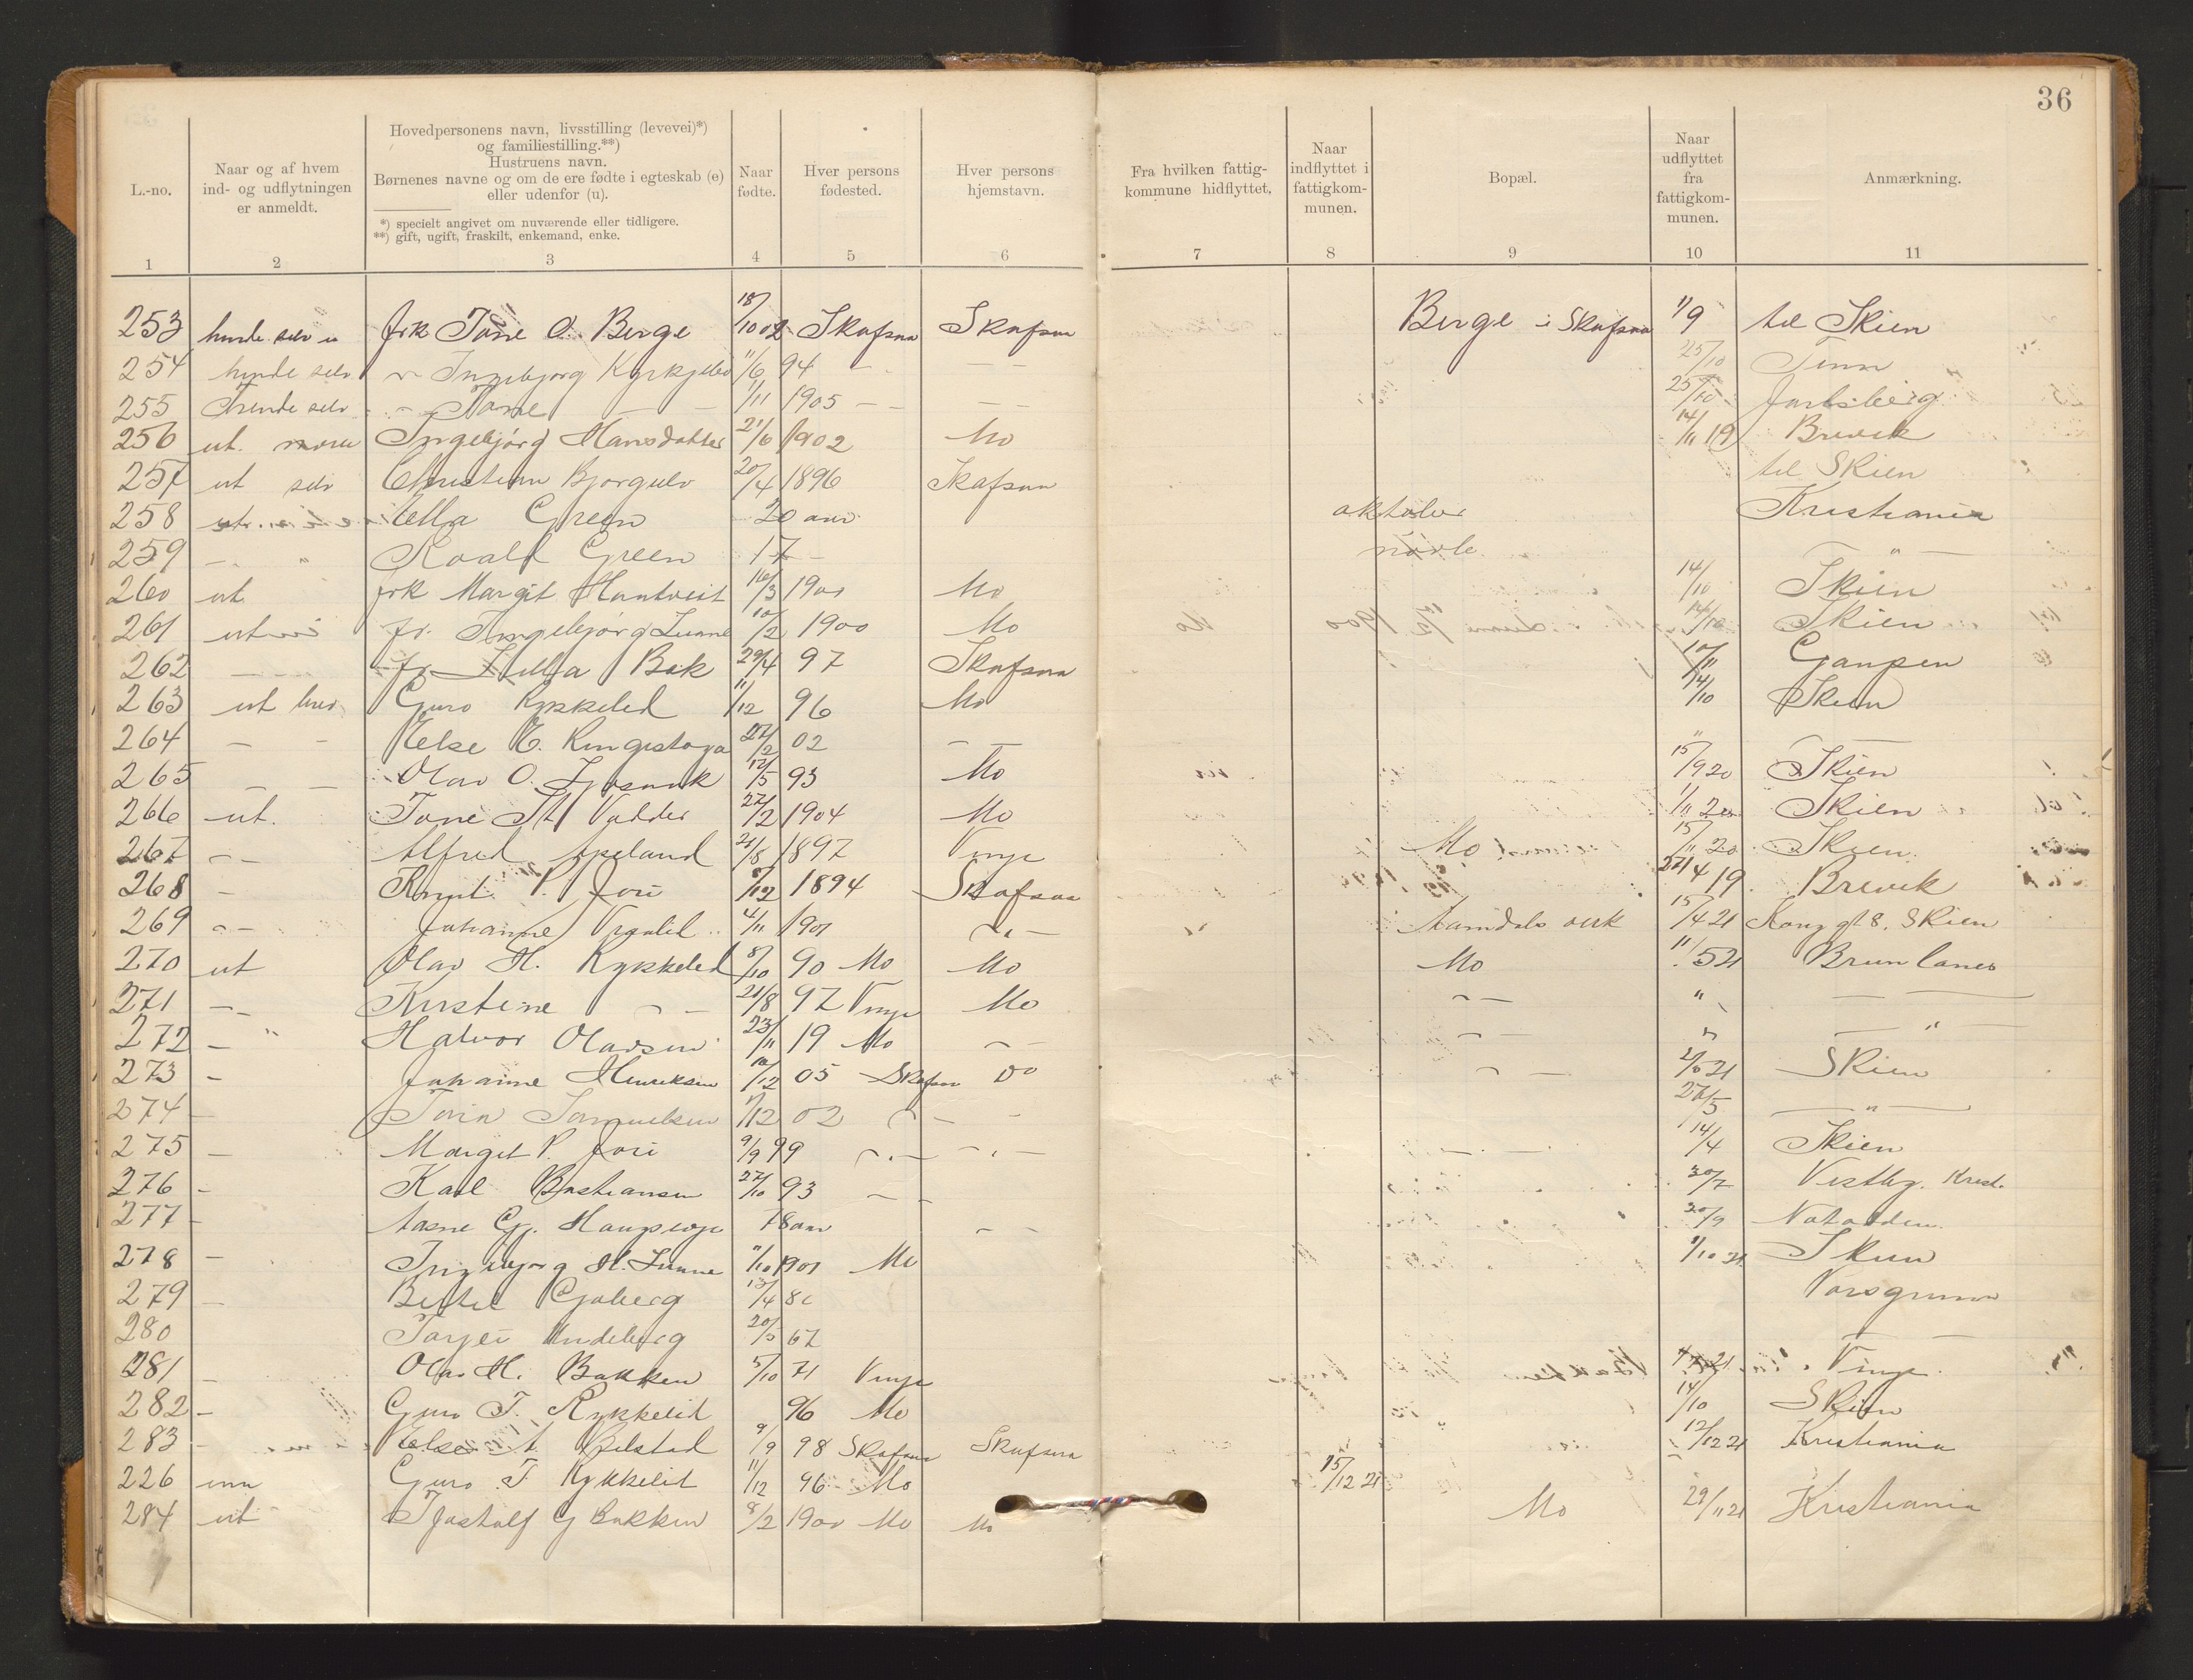 36
L.-no.
Naar og af hvem
ind- og udflytningen
er anmeldt.
Hovedpersonens navn, livsstilling (levevei)*)
og familiestilling.**)
Hustruens navn.
Børnenes navne og om de ere fødte i egteskab (e)
eller udenfor (u).
*) specielt angivet om nuværende eller tidligere.
**) gift, ugift, fraskilt, enkemand, enke.
Naar
fødte.
Hver persons
fødested.
Hver persons
hjemstavn.
Fra hvilken fattig-
kommune hidflyttet.
Naar
indflyttet i
fattigkom-
munen.
Bopæl.
Naar
udflyttet
fra
fattigkom-
munen.
Anmærkning.
1 2 3 4 5 6 7 8 9 10 11
253 frk Tone O. Berge 18/10 02 Skafsaa Skafsaa Berge i Skafsaa 1/9 til Skien
254 selv Ingebjørg 11/6 94 — — — 25/10 Tinn
255 selv — Tone — — 1/11 1905 — — — — 25/10 Jarlsberg
256 ut. Ingebjørg Hansdatter 21/6 1902 Mo 14/11 19 Brevik
257 ut selv Christian Bjørgulv 20/4 1896 Skafsaa til Skien
258 ut Ella Green 20 aar oktober Kristiania
259 — " Roald Green 17 — — " —
260 ut frk Margit 16/3 1901 Mo 14/10 Skien
261 ut fr. Ingebjørg Lunne 10/2 1900 Mo 14/10 Skien
262 — — fr. Bak 29/4 97 Skafsaa 10/11
263 ut Guro Rykkelid 11/12 96 Mo 14/10 Skien
264 — — Else 27/2 02 — — "
265 — — Olav O. 12/5 93 Mo 15/9 20 Skien
266 ut. Tone St. Vadder 27/2 1904 Mo 1/11 20 Skien
267 — — Alfred Apeland 21/8 1897 Vinje Mo 15/11 20 Skien
268 — Knut P. Jore 8/12 1894 Skafsaa 27/4 19 Brevik
269 — — Johanne 4/11 1901 — " — Aamdals verk 15/4 21 Kong gt 8. Skien
270 ut Olav H. Rykkelid 8/10 90 Mo Mo Mo 11/5 21 Brunlanes
271 — — Kristine — — 21/8 97 Vinje Mo — — " — —
272 — " Halvor Olavsen 23/11 19 Mo — — — — " — " —
273 — Johanne Henriksen 10/12 05 Skafsaa Do — — Skien
274 — 02 — — — 27/5 — " —
275 — Margit P. Jore 9/9 99 — " — — " — — 14/4 Skien
276 — Karl Bastiansen 27/10 93 — — 30/7 Vestby. Krist.
277 — Aasne Gj. 78 aar — — 20/9 Notodden
278 — Ingebjørg H. Lunne 11/10 1901 Mo Skien
279 — Gjøberg 13/4
280 Torjei Lindeberg 20/5 67
281 — Olav H. Bakken 5/10 71 Vinje Vinje
282 — Guro T. Rykkelid 96 Mo 14/10 Skien
283 — Else A. 9/9 98 Skafsaa Skafsaa 12/12 21 Kristiania
226 inn Guro T. Rykkelid 11/12 96 Mo 15/12 21
284 ut Tjostolf G Bakken 8/2 1900 Mo Mo Mo 29/11 21 Kristiania